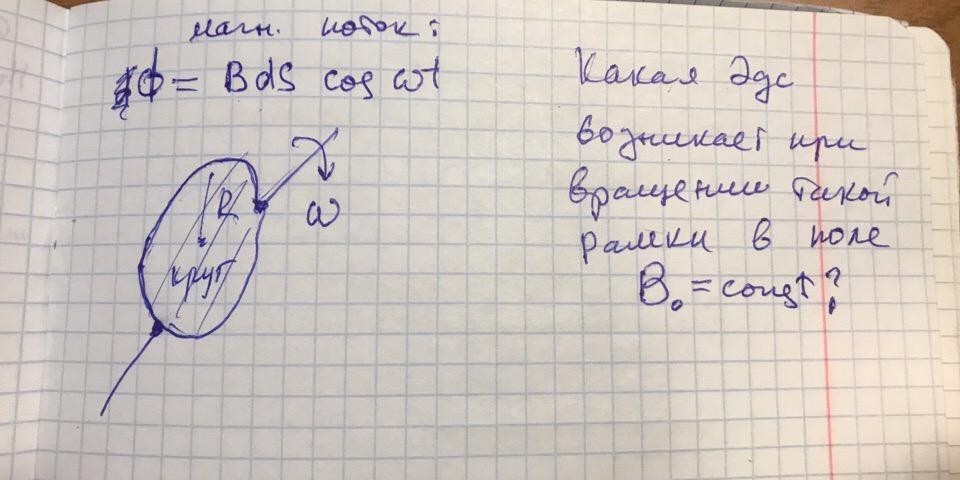 магн. поток:
Ф = B dS cos ωt
Какая Эдс
возникает при
вращении такой
рамки в поле
B₀ = const?
R
ω
круг